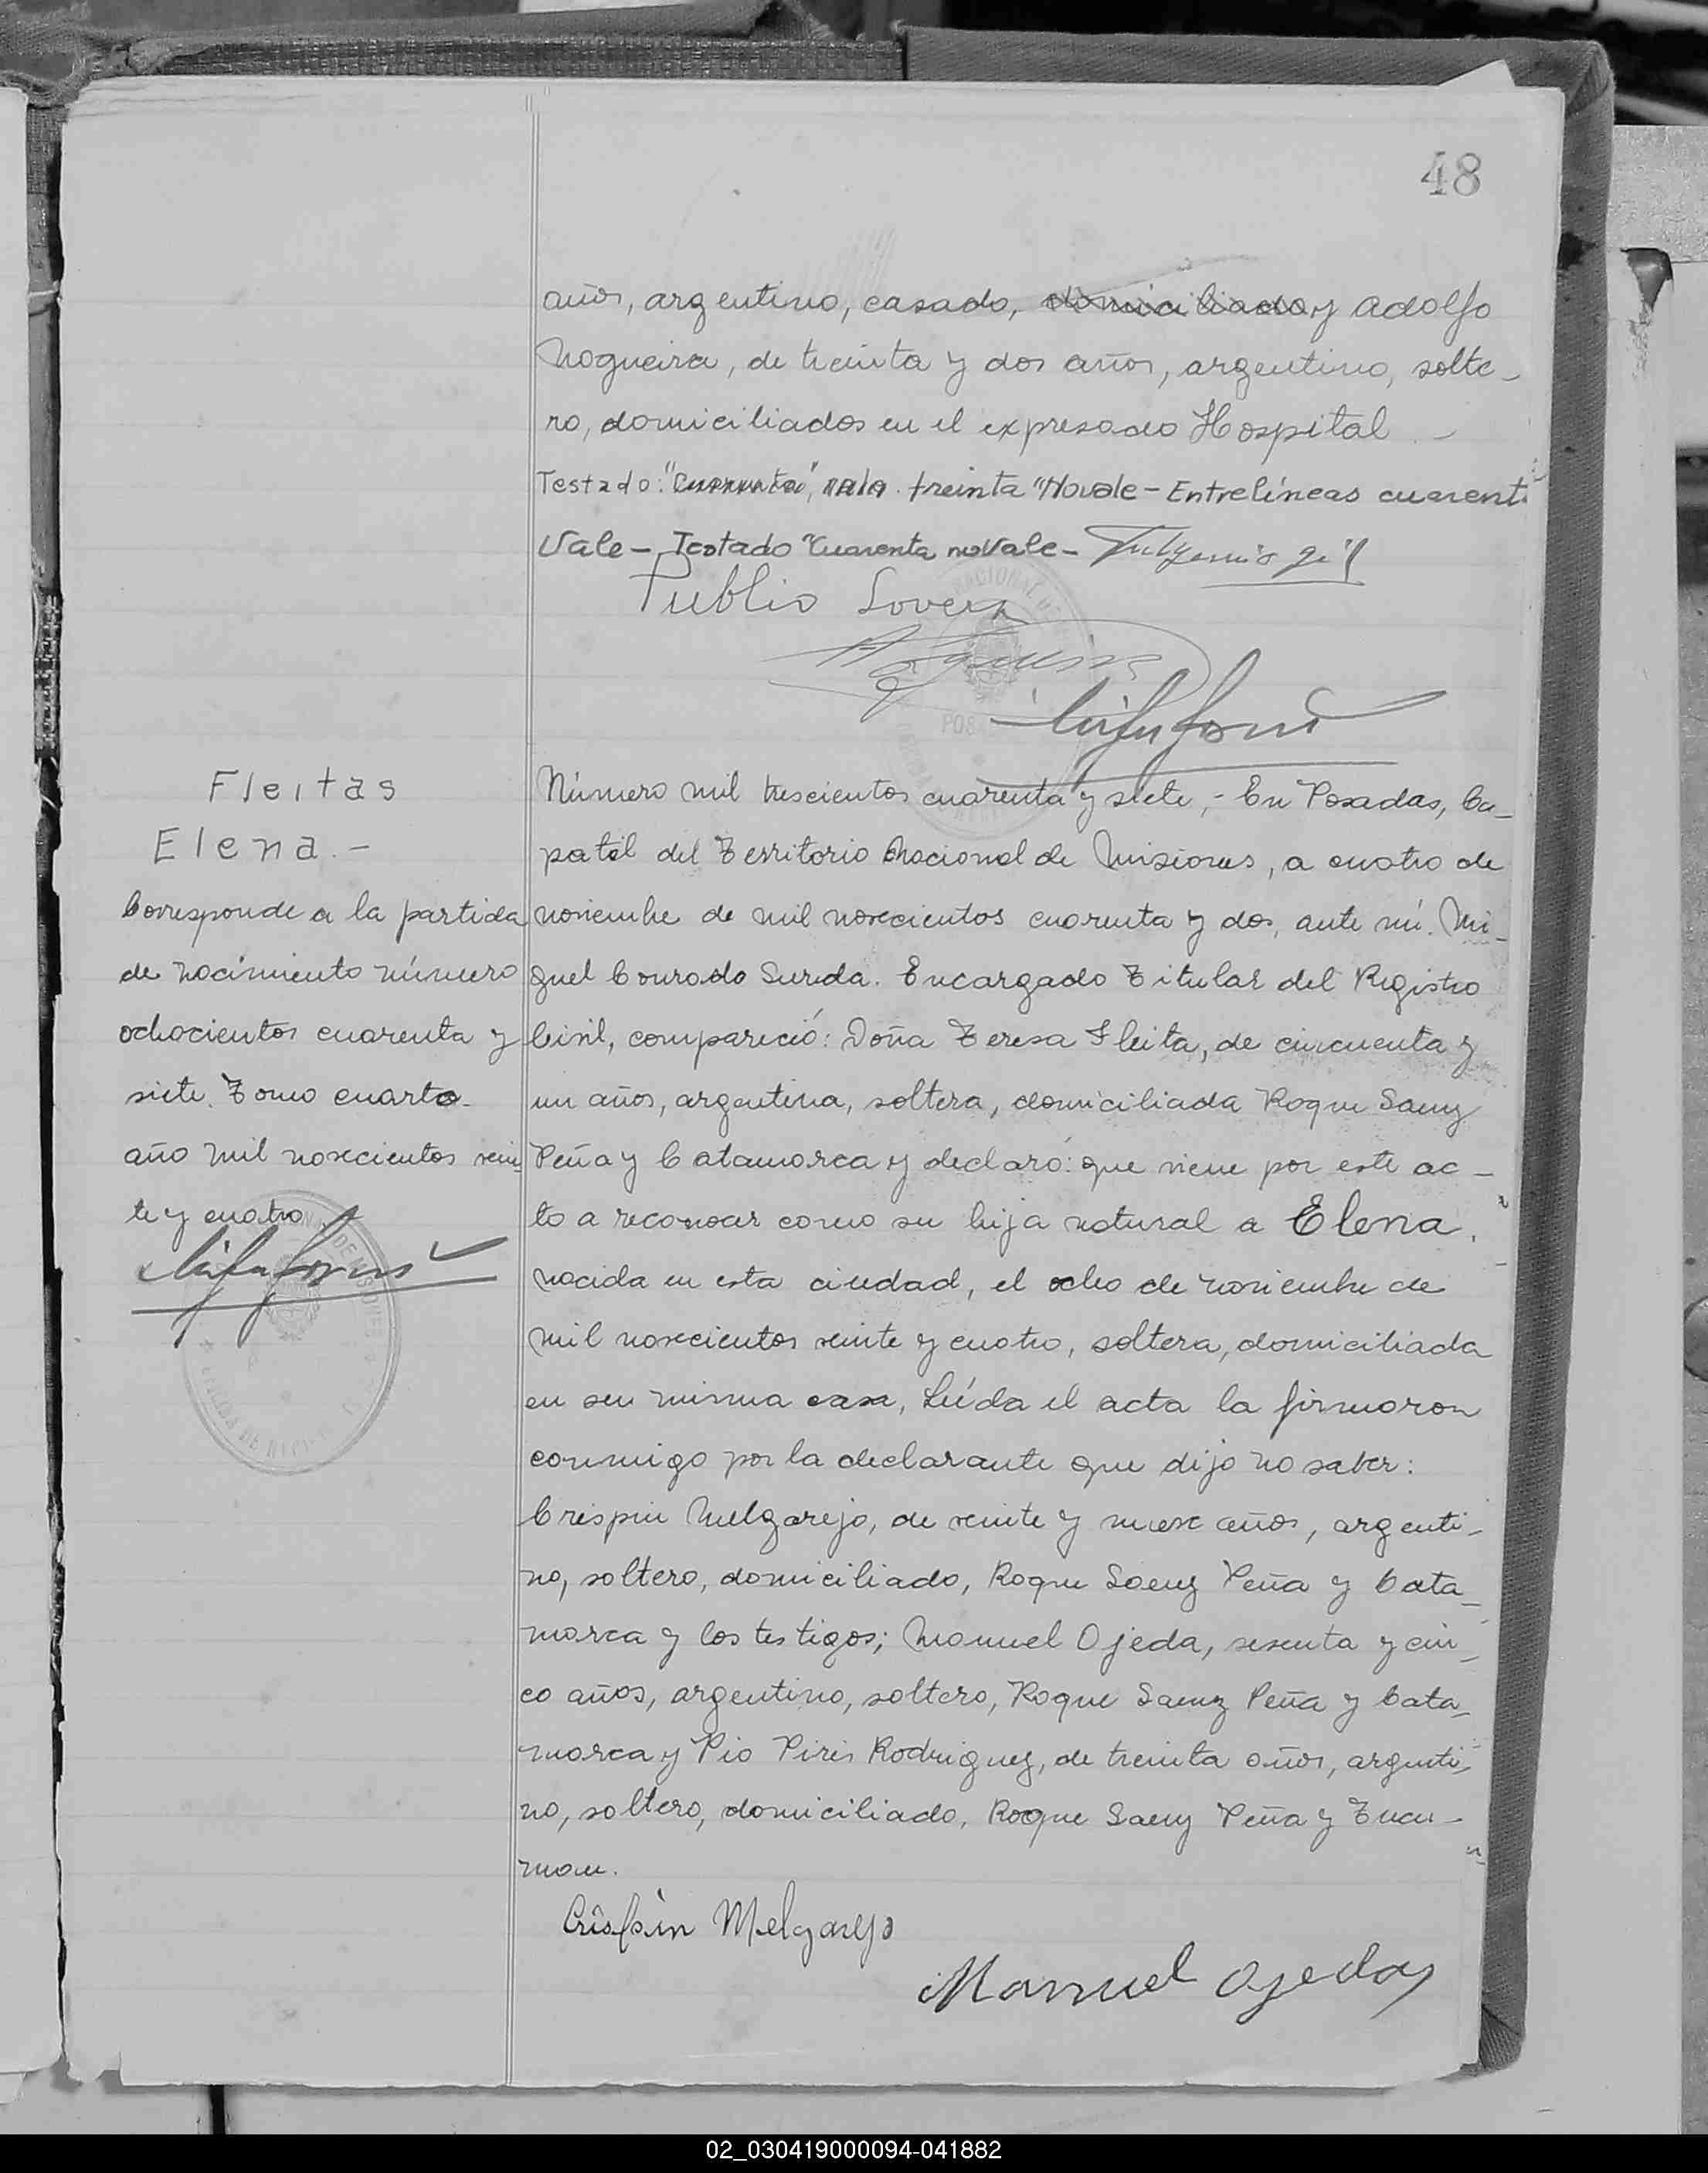 48
años, argentino, casado, domiciliado y Adolfo
Nogueira, de treinta y dos años, argentino, solte-
ro, domiciliados en el expresado Hospital -
Testado: "Cuarenta", treinta "No vale - Entrelíneas cuarenta
Vale - Testado "Cuarenta no vale -
Publio Lovera
Fleitas
Elena. -
Corresponde a la partida
de nacimiento número
ochocientos cuarenta y
siete. Tomo cuarto.
año mil novecientos vein
te y cuatro
Número mil trescientos cuarenta y siete, - En Posadas, Ca-
patal del Territorio Nacional de Misiones, a cuatro de
noviembre de mil novecientos cuarenta y dos, ante mí. Mi-
guel Conrado Sureda. Encargado Titular del Registro
Civil, compareció: Doña Teresa Fleita, de cincuenta y
un años, argentina, soltera, domiciliada Roque Saenz
Peña y Catamarca y declaró: que viene por este ac-
to a reconocer como su hija natural a Elena,
nacida en esta ciudad, el ocho de noviembre de
mil novecientos veinte y cuatro, soltera, domiciliada
en su misma casa, Leída el acta la firmaron
conmigo por la declarante que dijo no saber:
Crispin Melgarejo, de veinte y nueve años, argenti-
no, soltero, domiciliado, Roque Saenz Peña y Cata-
marca y los testigos; Manuel Ojeda, sesenta y cin-
co años, argentino, soltero, Roque Saenz Peña y Cata-
marca y Pio Piris Rodriguez, de treinta años, argenti-
no, soltero, domiciliado, Roque Saenz Peña y Tucu-
man.
Crispin Melgarejo
Manuel Ojeda
02_030419000094-041882